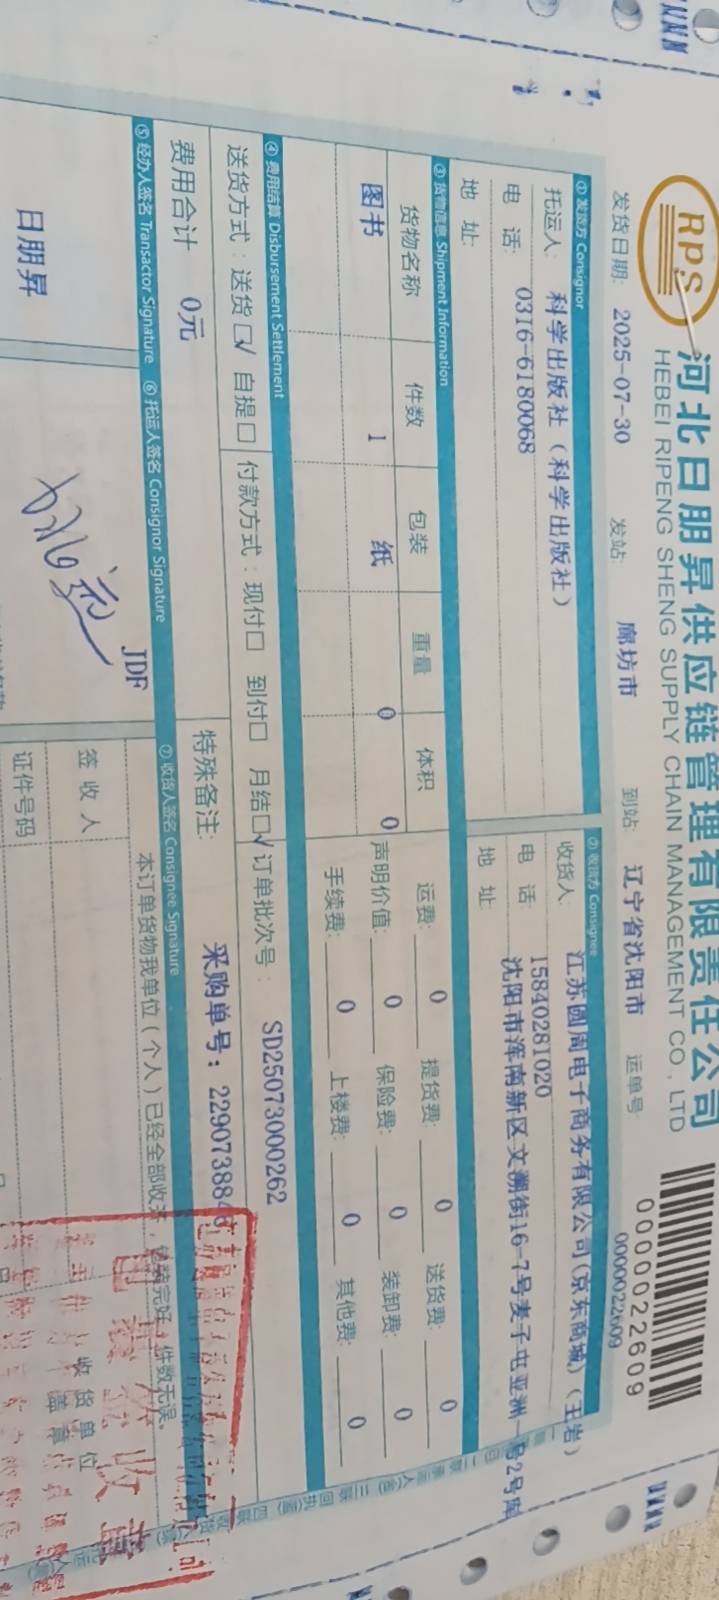 RPS 河北日朋昇供应链管理有限责任公司
HEBEI RIPENG SHENG SUPPLY CHAIN MANAGEMENT CO., LTD
0000022609
发货日期: 2025-07-30 发站: 廊坊市 到站: 辽宁省沈阳市 运单号: 0000022609
① 发货方 Consignor ② 收货方 Consignee
托运人: 科学出版社（科学出版社） 收货人: 江苏圆周电子商务有限公司(京东商城)（王岩）
电 话: 0316-6180068 电 话: 15840281020
地 址: 地 址: 沈阳市浑南新区文溯街16-7号麦子屯亚洲一号2号库
③ 货物信息 Shipment Information
货物名称 件数 包装 重量 体积 运费: 0 提货费: 0 送货费: 0
图书 1 纸 0 0 声明价值: 0 保险费: 0 装卸费: 0
手续费: 0 上楼费: 0 其他费: 0
④ 费用结算 Disbursement Settlement
送货方式: 送货□√ 自提□ 付款方式: 现付□ 到付□ 月结□√ 订单批次号: SD25073000262
费用合计 0元 特殊备注: 采购单号: 229073884
⑤ 经办人签名 Transactor Signature ⑥ 托运人签名 Consignor Signature ⑦ 收货人签名 Consignee Signature
日朋昇 JDF
本订单货物我单位（个人）已经全部收齐，包装完好，件数无误。
签 收 人 收 货 单 位
证件号码 盖 章